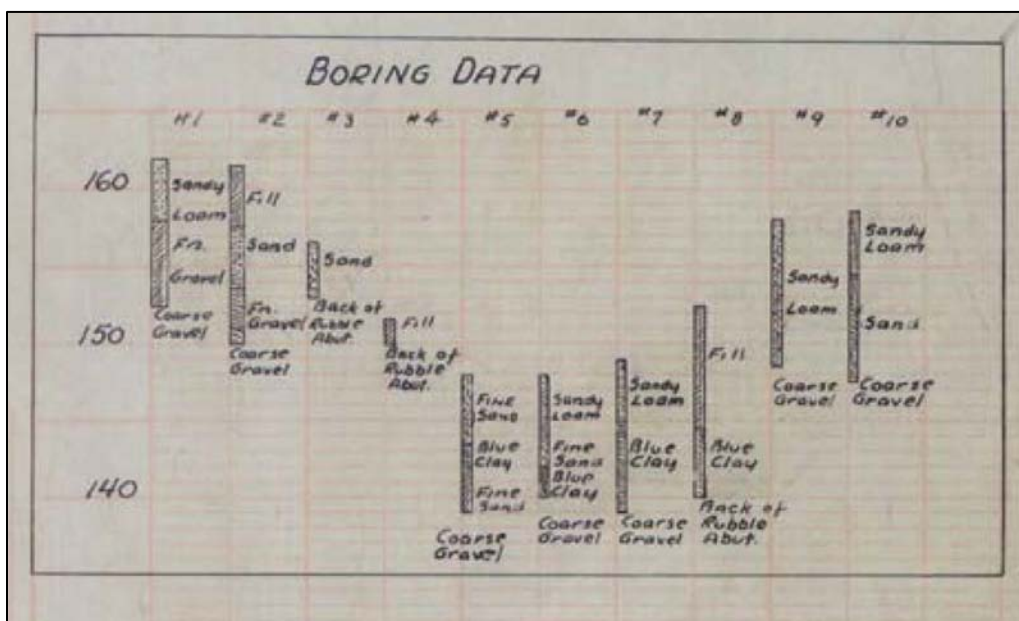 BORING DATA
#1 #2 #3 #4 #5 #6 #7 #8 #9 #10
160
150
140
Sandy
Loam
Fn.
Gravel
Coarse
Gravel
Fill
Sand
Fn.
Gravel
Coarse
Gravel
Sand
Back of
Rubble
Abut.
Fill
Back of
Rubble
Abut.
Fine
Sand
Blue
Clay
Fine
Sand
Coarse
Gravel
Sandy
Loam
Fine
Sand
Blue
Clay
Coarse
Gravel
Sandy
Loam
Blue
Clay
Coarse
Gravel
Fill
Blue
Clay
Back of
Rubble
Abut.
Sandy
Loam
Coarse
Gravel
Sandy
Loam
Sand
Coarse
Gravel